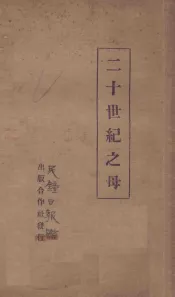 二十世紀之母
民鐘日報
出版合作社